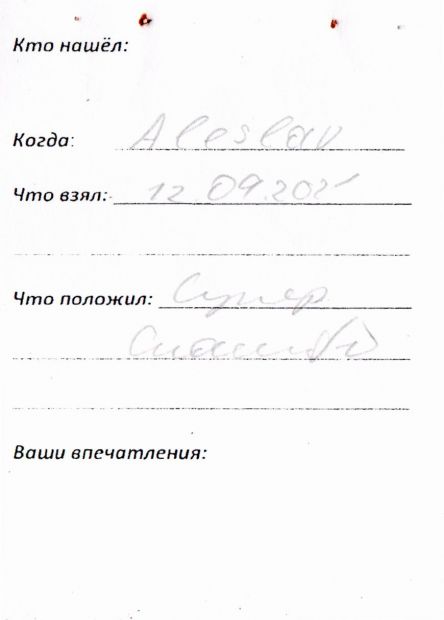 Кто нашёл:
Когда: Aleslav
Что взял: 12.09.2021
Что положил: Супер
Спасибо
Ваши впечатления: